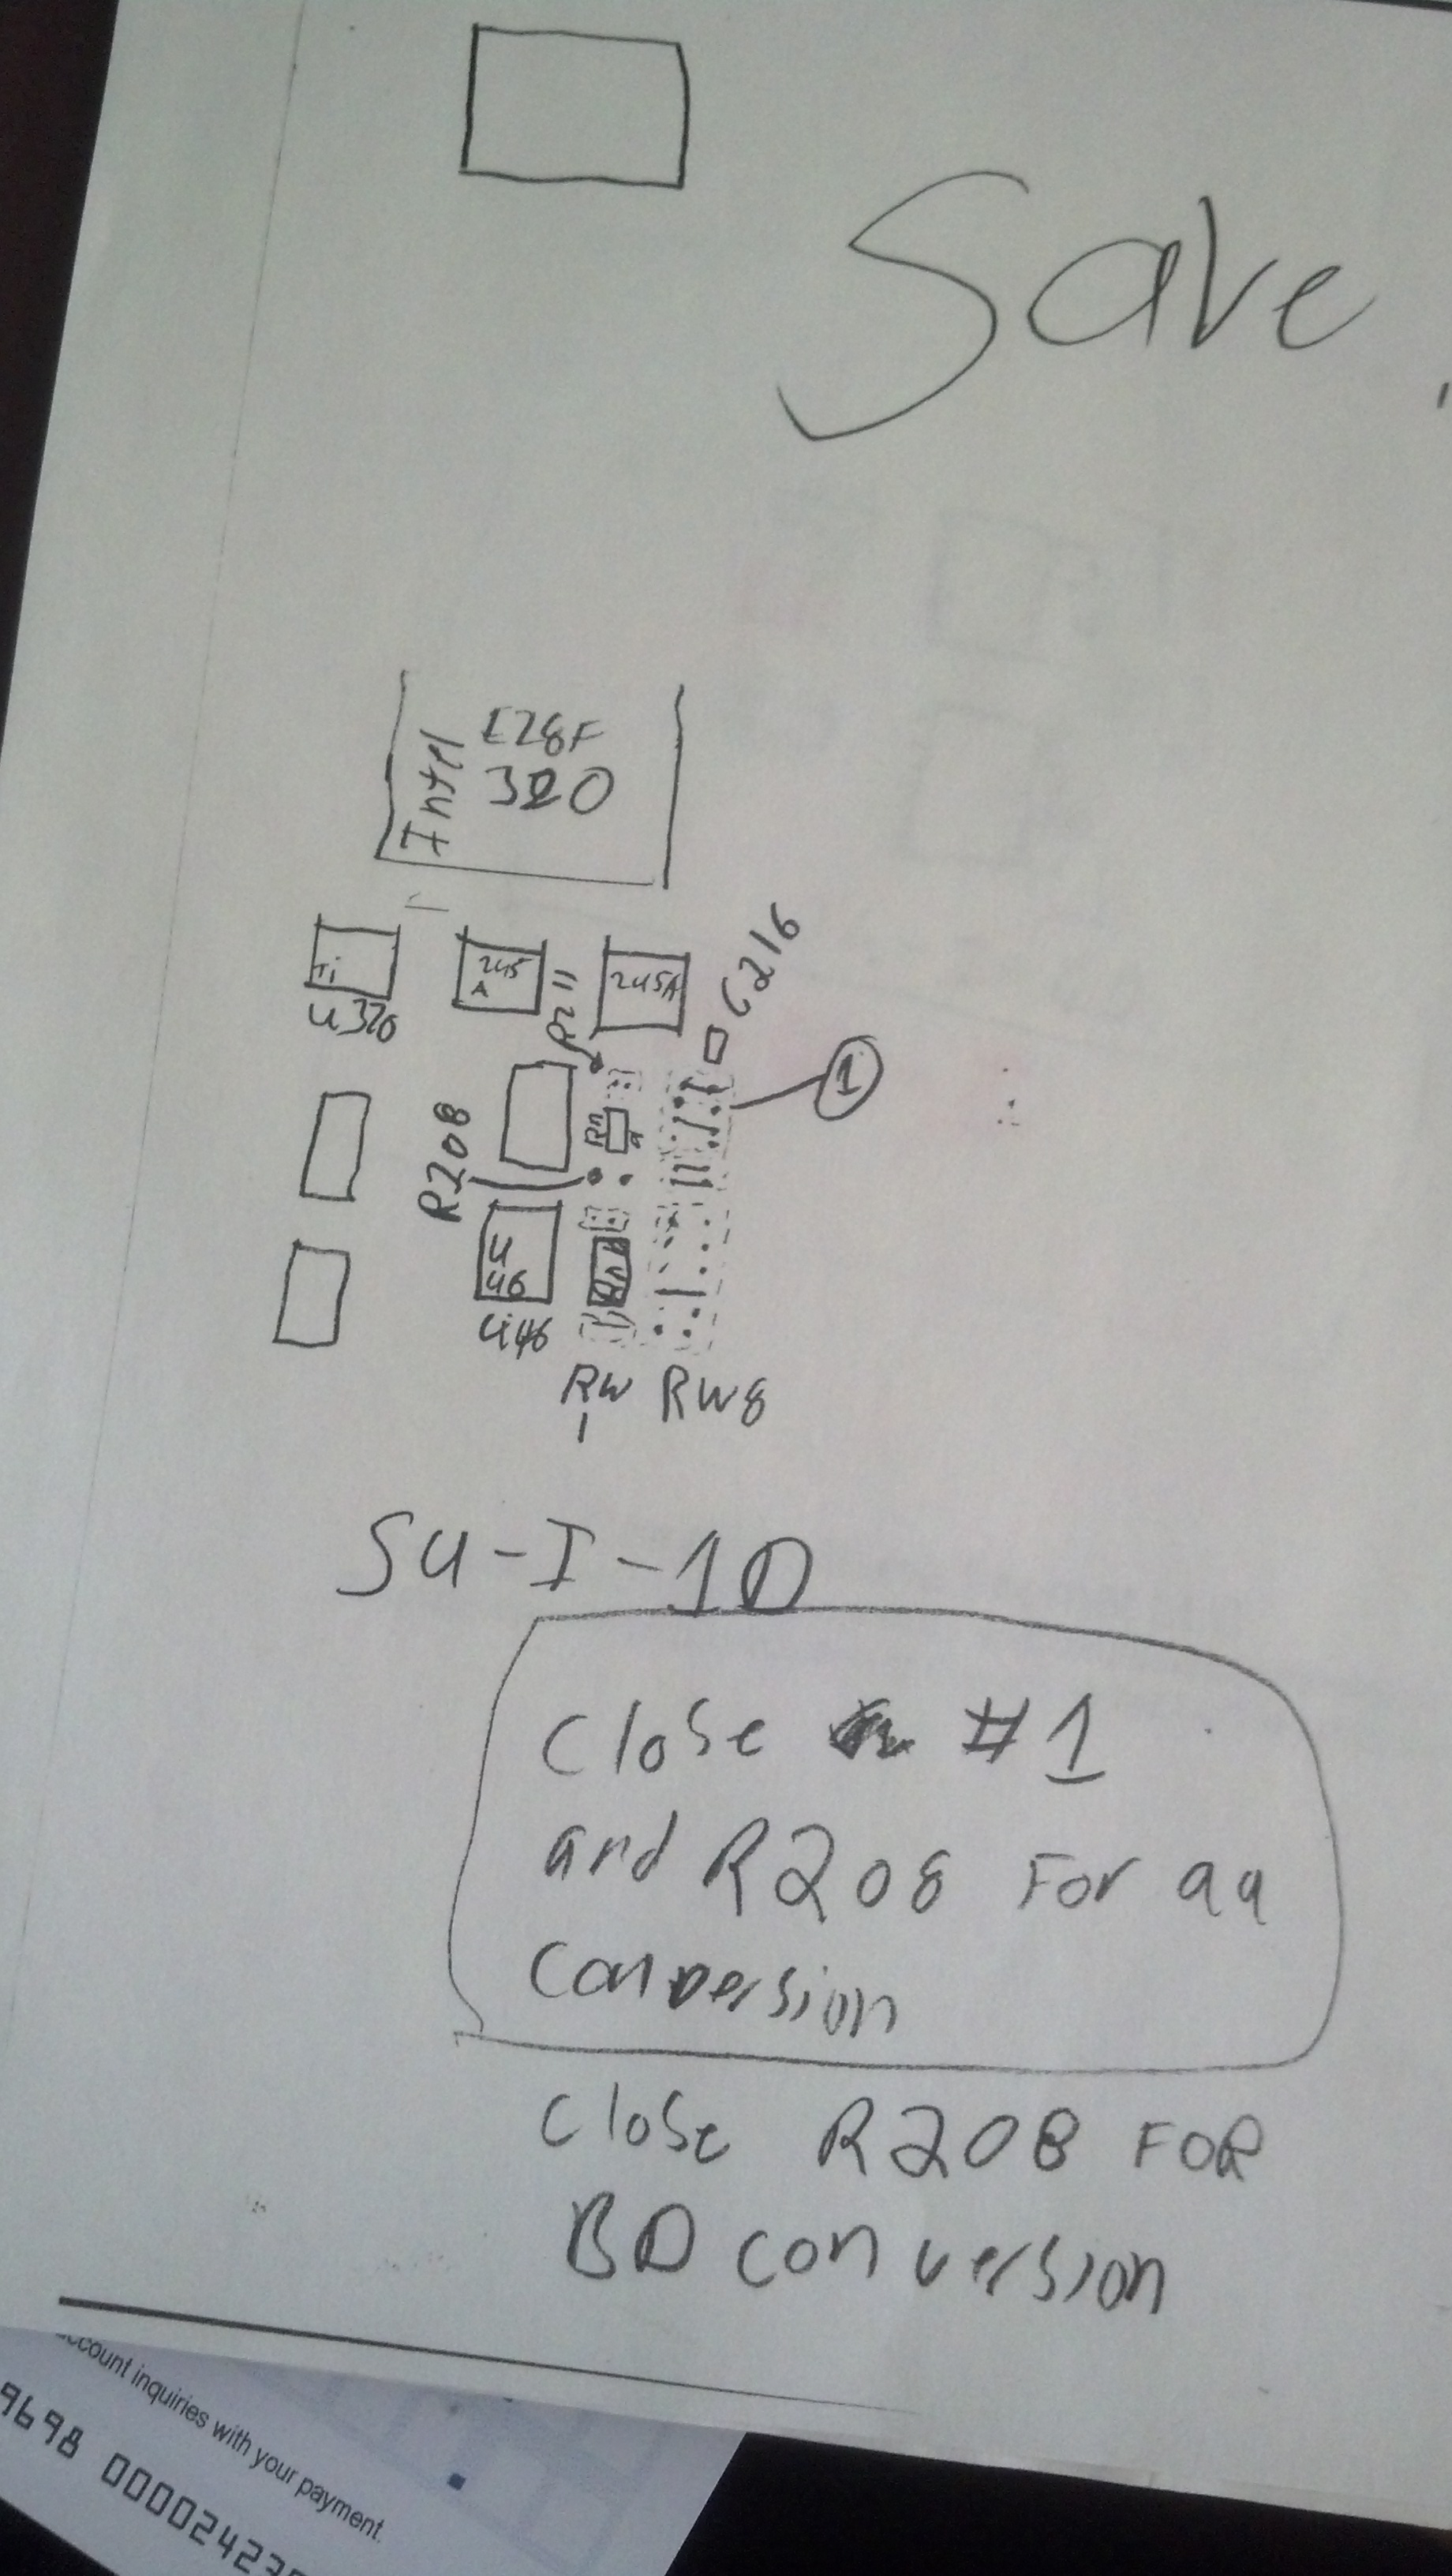 Save
Intel
E28F
320
Ti
U320
245
A
R211
245A
C216
1
R208
Rn
U
46
U46
Rn
RW
1
RW8
SU-I-1D
Close #1
and R208 For aa
conversion
Close R208 FOR
BD conversion
account inquiries with your payment.
9698 0000242